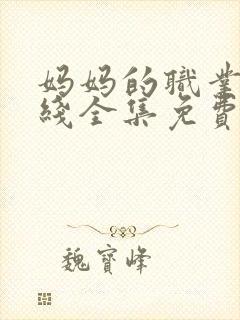 妈妈的職業
綫全集免費
魏寶峰